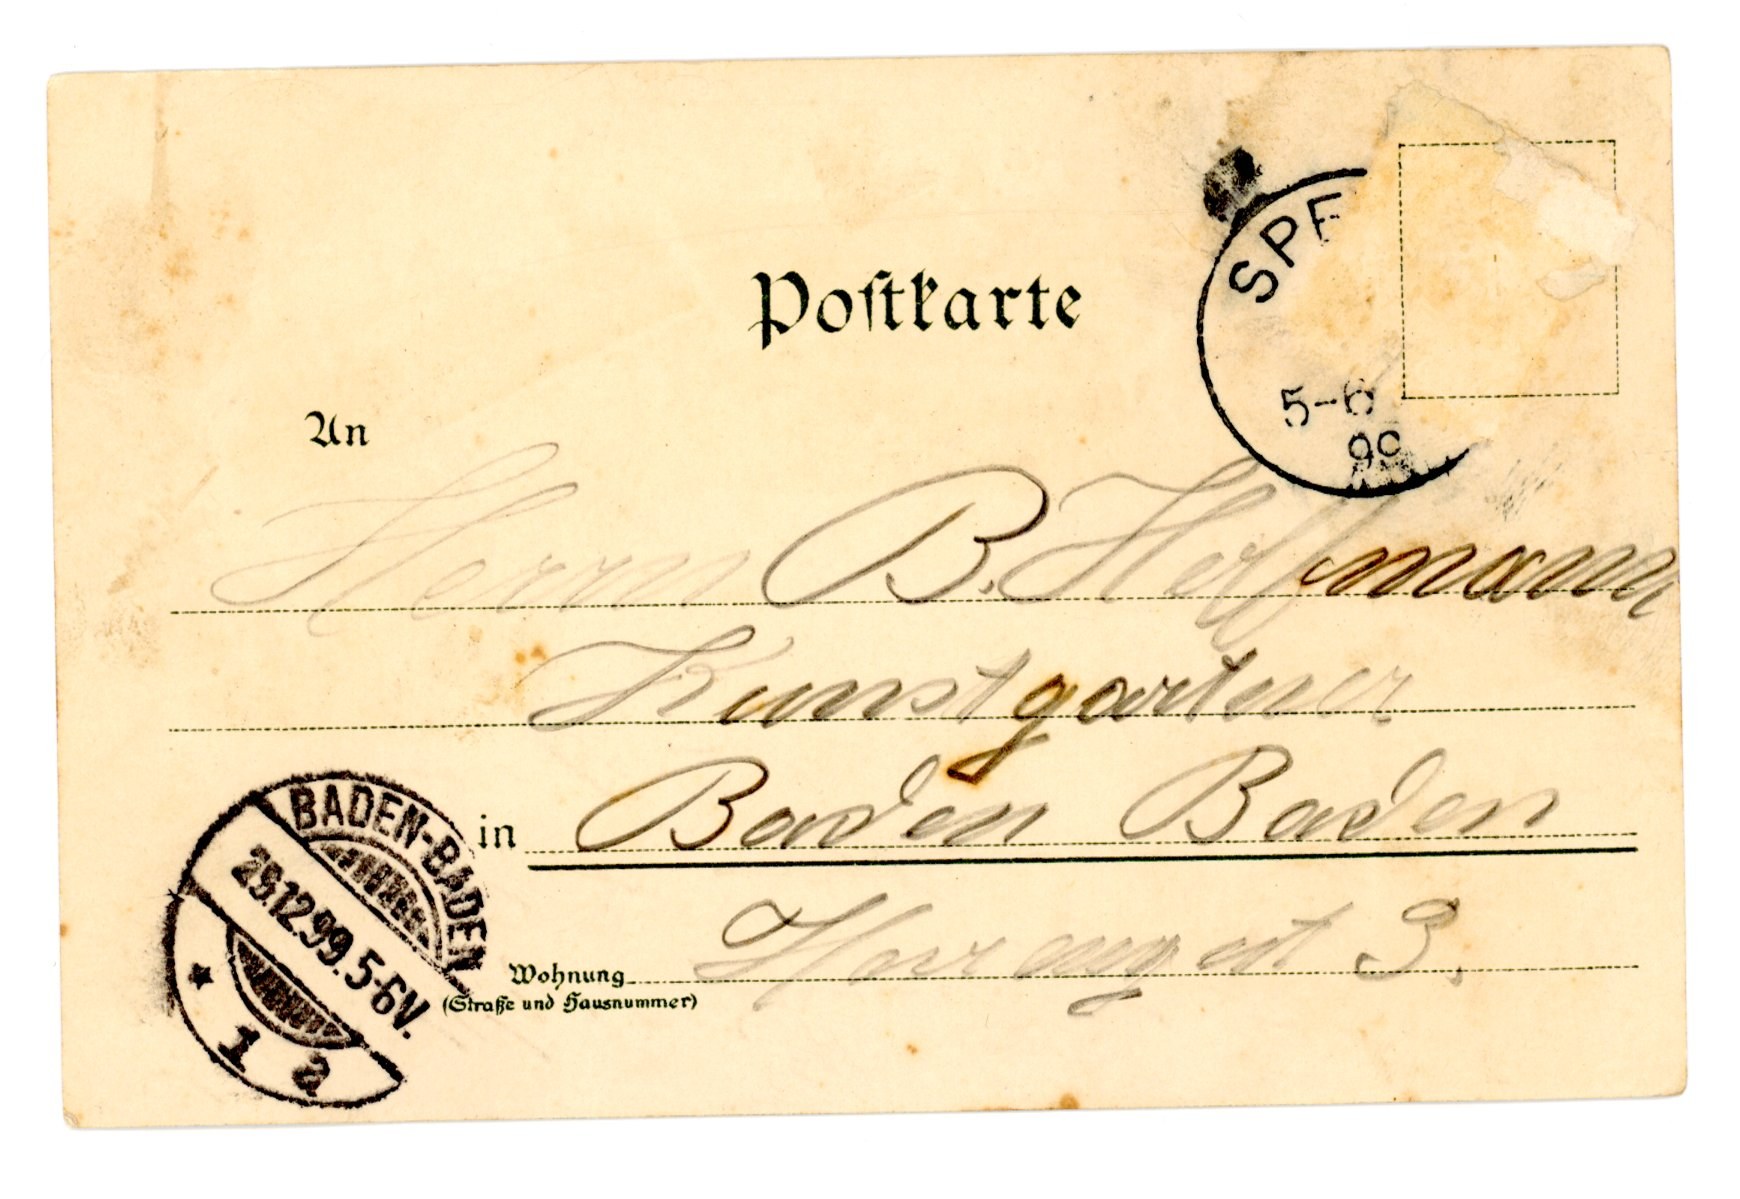 Postkarte
SPE
5-6
99
An
Herrn B. Hoffmann
Kunstgartner
in Baden Baden
BADEN-BADEN
29.12.99.5-6V.
1 a
Wohnung 3.
(Straße und Hausnummer)